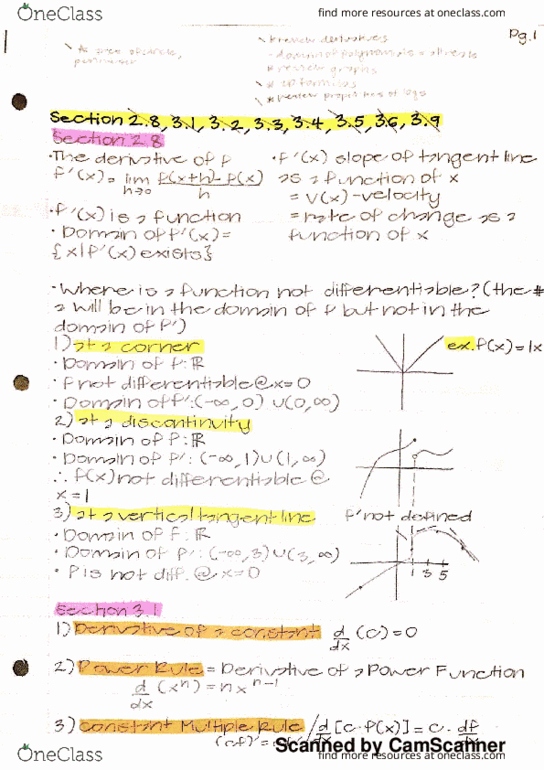 OneClass
find more resources at oneclass.com
Pg. 1
* review derivatives
- domain of polynomials = all reals
* review graphs
* review properties of logs
Section 2.8, 3.1, 3.2, 3.3, 3.4, 3.5, 3.6, 3.9
Section 2.8
• The derivative of f
f'(x) = lim h→0 f(x+h) - f(x) / h
• f'(x) is a function
• Domain of f'(x) =
{x | f'(x) exists}
• f'(x) slope of tangent line
as a function of x
= v(x) - velocity
= rate of change as a
function of x
• Where is a function not differentiable? (the #
a will be in the domain of f but not in the
domain of f')
1) at a corner
• Domain of f: ℝ
• f not differentiable @ x=0
• Domain of f': (-∞, 0) ∪ (0, ∞)
ex. f(x) = |x
2) at a discontinuity
• Domain of f: ℝ
• Domain of f': (-∞, 1) ∪ (1, ∞)
∴ f(x) not differentiable @
x = 1
3) at a vertical tangent line
f' not defined
• Domain of f: ℝ
• Domain of f': (-∞, 3) ∪ (3, ∞)
• f is not diff. @ x=0
1 3 5
Section 3.1
1) Derivative of a constant d/dx (c) = 0
2) Power Rule = Derivative of a Power Function
d/dx (xⁿ) = nxⁿ⁻¹
3) Constant Multiple Rule / d/dx [c·f(x)] = c · df/dx
Scanned by CamScanner
OneClass
find more resources at oneclass.com